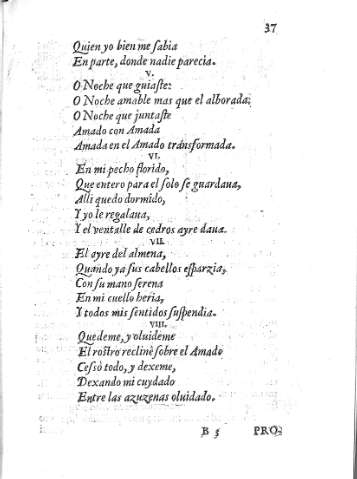 37
Quien yo bien me ſabia
En parte, donde nadie parecia.
V.
O Noche que guiaſte:
O Noche amable mas que el alborada:
O Noche que juntaſte
Amado con Amada
Amada en el Amado transformada.
VI.
En mi pecho florido,
Que entero para el ſolo ſe guardaua,
Alli quedo dormido,
Y yo le regalaua,
Y el ventalle de cedros ayre daua.
VII.
El ayre del almena,
Quando ya ſus cabellos eſparzia,
Con ſu mano ſerena
En mi cuello heria,
Y todos mis ſentidos ſuſpendia.
VIII.
Quedeme, y oluideme
El roſtro reclinè ſobre el Amado
Ceſſò todo, y dexeme,
Dexando mi cuydado
Entre las azuzenas oluidado.
B 3 PRO-